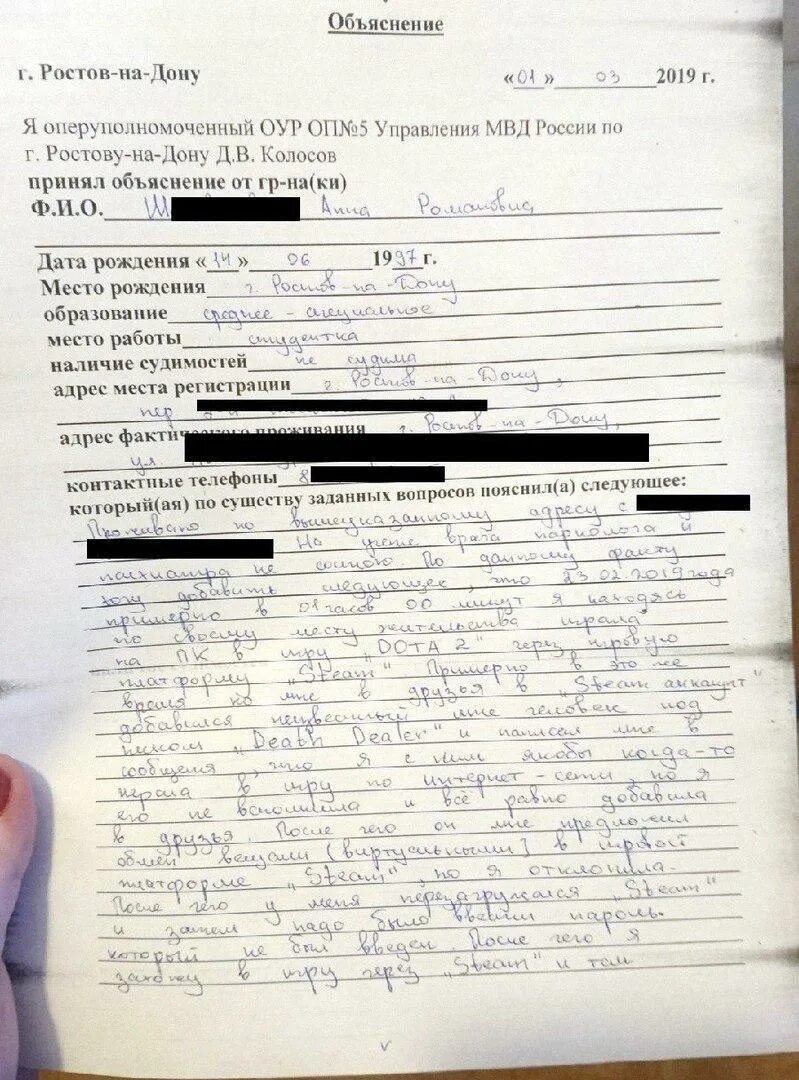 Объяснение
г. Ростов-на-Дону «01» 03 2019 г.
Я оперуполномоченный ОУР ОП№5 Управления МВД России по
г. Ростову-на-Дону Д.В. Колосов
принял объяснение от гр-на(ки)
Ф.И.О. Ш Анна Романовна
Дата рождения «14» 06 1997 г.
Место рождения г. Ростов-на-Дону
образование среднее-специальное
место работы студентка
наличие судимостей не судима
адрес места регистрации г. Ростов-на-Дону,
пер
адрес фактического проживания г. Ростов-на-Дону,
ул.
контактные телефоны 8
который(ая) по существу заданных вопросов пояснил(а) следующее:
Проживаю по вышеуказанному адресу с
На учете врача нарколога и
психиатра не состою. По данному факту
хочу добавить следующее, что 23.02.2019 года
примерно в 01 часов 00 минут я находясь
по своему месту жительства играла
на ПК в игру „DOTA 2" через игровую
платформу „Steam". Примерно в это же
время ко мне в друзья в „Steam аккаунт"
добавился неизвестный мне человек под
ником „Death Dealer" и написал мне в
сообщения, что я с ним якобы когда-то
играла в игру по интернет-сети, но я
его не вспомнила и всё равно добавила
в друзья. После чего он мне предложил
обмен вещами (виртуальными) в игровой
платформе „Steam", но я отклонила.
После чего у меня перезагружался „Steam"
и затем надо было ввести пароль.
который не был введен. После чего я
захожу в игру через „Steam" и там
v